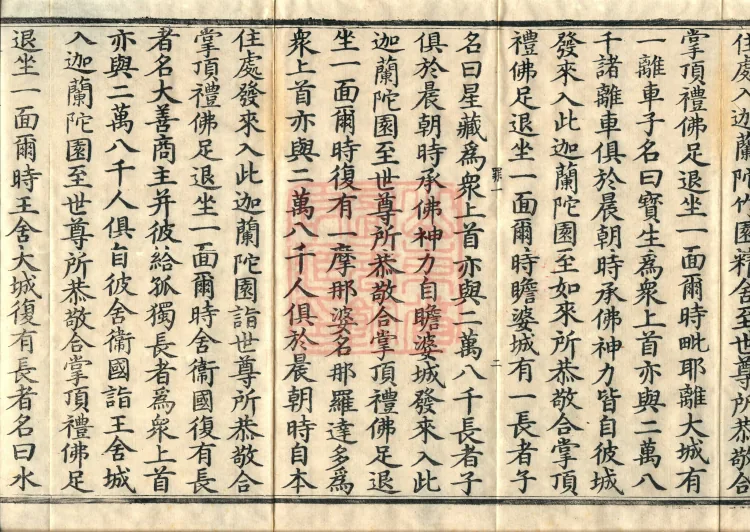 住處入迦蘭陀竹園精舍至世尊所恭敬合
掌頂禮佛足退坐一面爾時毗耶離大城有
一離車子名曰寶生爲衆上首亦與二萬八
千諸離車俱於晨朝時承佛神力皆自彼城
發來入此迦蘭陀園至如來所恭敬合掌頂
禮佛足退坐一面爾時瞻婆城有一長者子
二
名曰星藏爲衆上首亦與二萬八千長者子
俱於晨朝時承佛神力自瞻婆城發來入此
迦蘭陀園至世尊所恭敬合掌頂禮佛足退
坐一面爾時復有一摩那婆名那羅達多爲
衆上首亦與二萬八千人俱於晨朝時自本
住處發來入此迦蘭陀園詣世尊所恭敬合
掌頂禮佛足退坐一面爾時舍衞國復有長
者名大善商主并彼給孤獨長者爲衆上首
亦與二萬八千人俱自彼舍衞國詣王舍城
入迦蘭陀園至世尊所恭敬合掌頂禮佛足
退坐一面爾時王舍大城復有長者名曰水